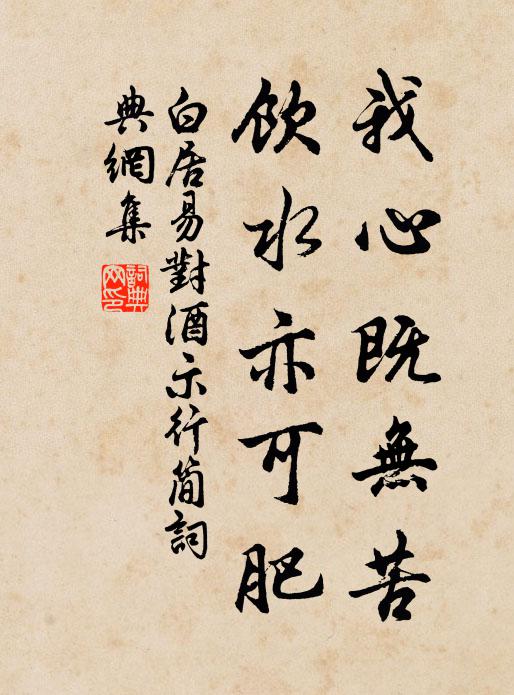 我心既無苦
飲水亦可肥
白居易對酒示行簡詞
典網集
詞典網印